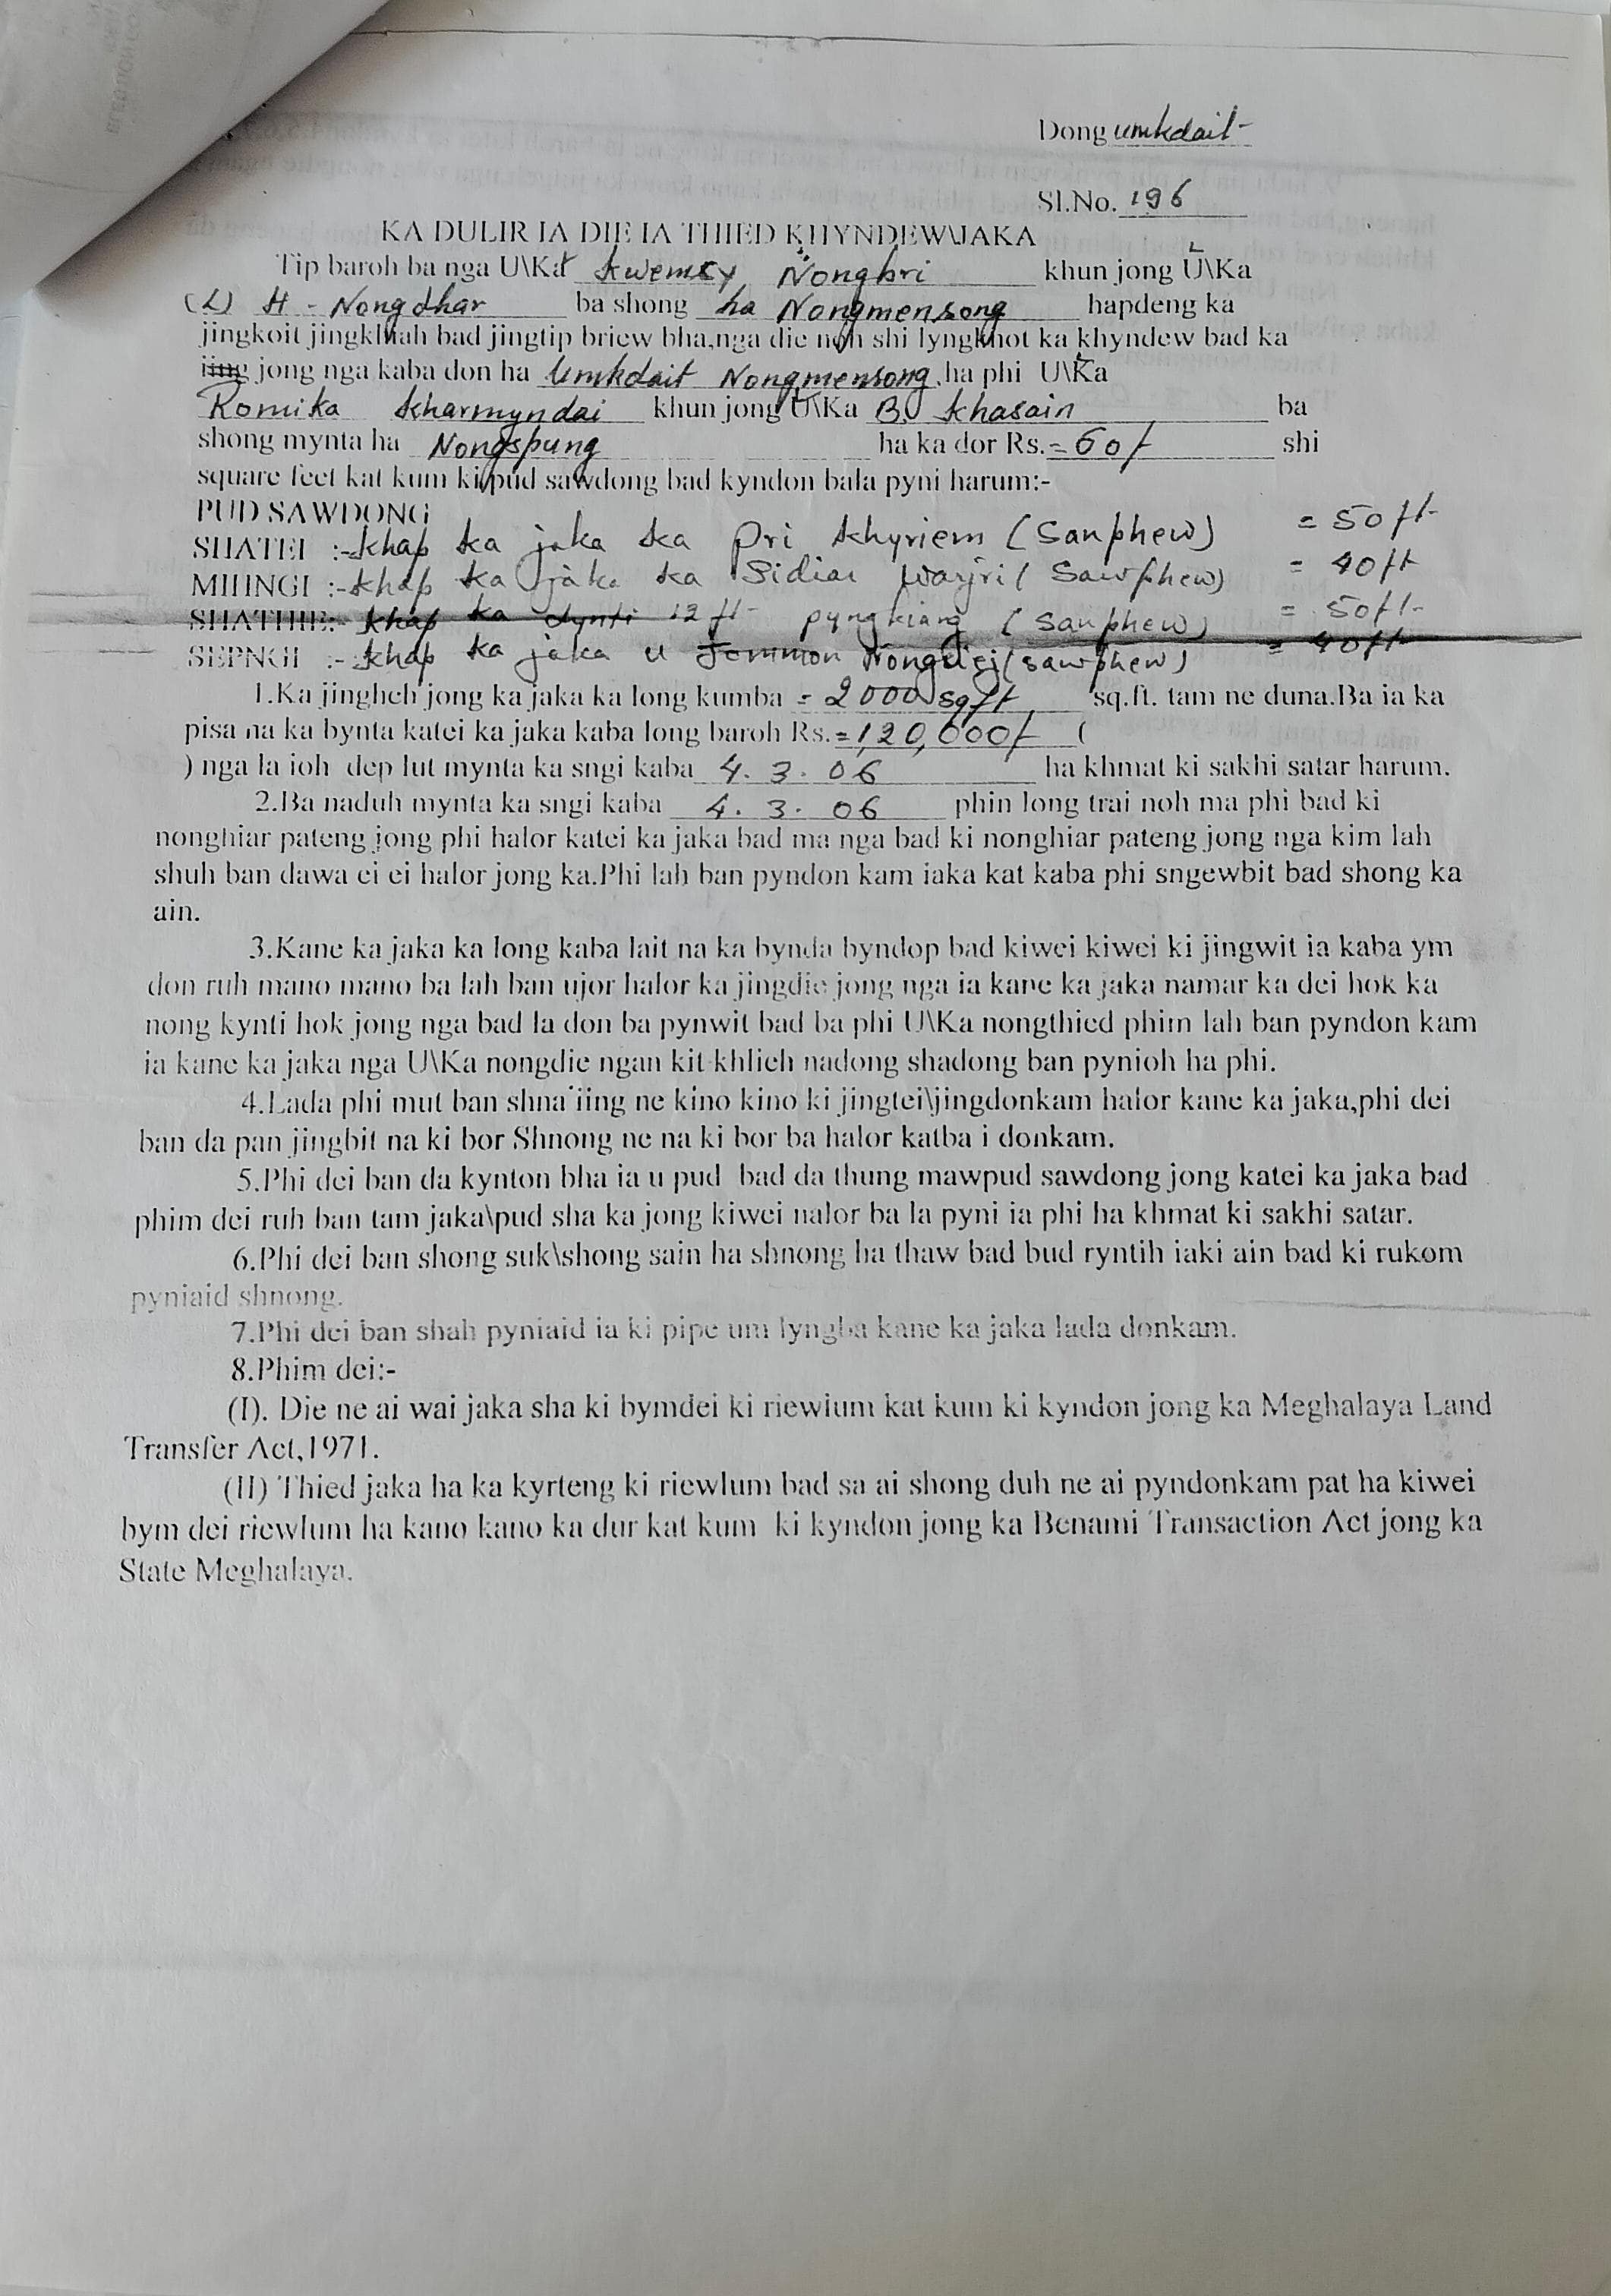 Dong umkdait
Sl.No. 196
KA DULIR IA DIE IA THIED KHYNDEW\JAKA
Tip baroh ba nga U\Ka Nongbri khun jong U\Ka
(L) H - Nongdhar ba shong ha Nongmensong hapdeng ka
jingkoit jingkhiah bad jingtip briew bha,nga die noh shi lyngkhot ka khyndew bad ka
iing jong nga kaba don ha Umkdait Nongmensong, ha phi U\Ka
Romika Kharmyndai khun jong U\Ka B. Khasain ba
shong mynta ha Nongspung ha ka dor Rs.=60/ shi
square feet kat kum ki pud sawdong bad kyndon bala pyni harum:-
PUD SAWDONG
SHATEI :-Khap ka jaka ka Pri Khyriem (Sanphew) = 50ft
MIHNGI :-Khap ka jaka ka Sidiar Warjri (Sawphew) = 40ft
SHATHIE:- Khap ka lynti 12 ft pyngkiang (Sanphew) = 50ft
SEPNGI :-Khap ka jaka u Jemmon (sawphew) = 40ft
1.Ka jingheh jong ka jaka ka long kumba = 2000 sqft sq.ft. tam ne duna.Ba ia ka
pisa na ka bynta katei ka jaka kaba long baroh Rs.=1,20,000/ (
) nga la ioh dep lut mynta ka sngi kaba 4. 3. 06 ha khmat ki sakhi satar harum.
2.Ba naduh mynta ka sngi kaba 4. 3. 06 phin long trai noh ma phi bad ki
nonghiar pateng jong phi halor katei ka jaka bad ma nga bad ki nonghiar pateng jong nga kim lah
shuh ban dawa ei ei halor jong ka.Phi lah ban pyndon kam iaka kat kaba phi sngewbit bad shong ka
ain.
3.Kane ka jaka ka long kaba lait na ka bynda byndop bad kiwei kiwei ki jingwit ia kaba ym
don ruh mano mano ba lah ban ujor halor ka jingdie jong nga ia kane ka jaka namar ka dei hok ka
nong kynti hok jong nga bad la don ba pynwit bad ba phi U\Ka nongthied phim lah ban pyndon kam
ia kane ka jaka nga U\Ka nongdie ngan kit khlieh nadong shadong ban pynioh ha phi.
4.Lada phi mut ban shna iing ne kino kino ki jingtei\jingdonkam halor kane ka jaka,phi dei
ban da pan jingbit na ki bor Shnong ne na ki bor ba halor katba i donkam.
5.Phi dei ban da kynton bha ia u pud bad da thung mawpud sawdong jong katei ka jaka bad
phim dei ruh ban tam jaka\pud sha ka jong kiwei nalor ba la pyni ia phi ha khmat ki sakhi satar.
6.Phi dei ban shong suk\shong sain ha shnong ha thaw bad bud ryntih iaki ain bad ki rukom
pyniaid shnong.
7.Phi dei ban shah pyniaid ia ki pipe um lyngba kane ka jaka lada donkam.
8.Phim dei:-
(I). Die ne ai wai jaka sha ki bymdei ki riewlum kat kum ki kyndon jong ka Meghalaya Land
Transfer Act,1971.
(II) Thied jaka ha ka kyrteng ki riewlum bad sa ai shong duh ne ai pyndonkam pat ha kiwei
bym dei riewlum ha kano kano ka dur kat kum ki kyndon jong ka Benami Transaction Act jong ka
State Meghalaya.